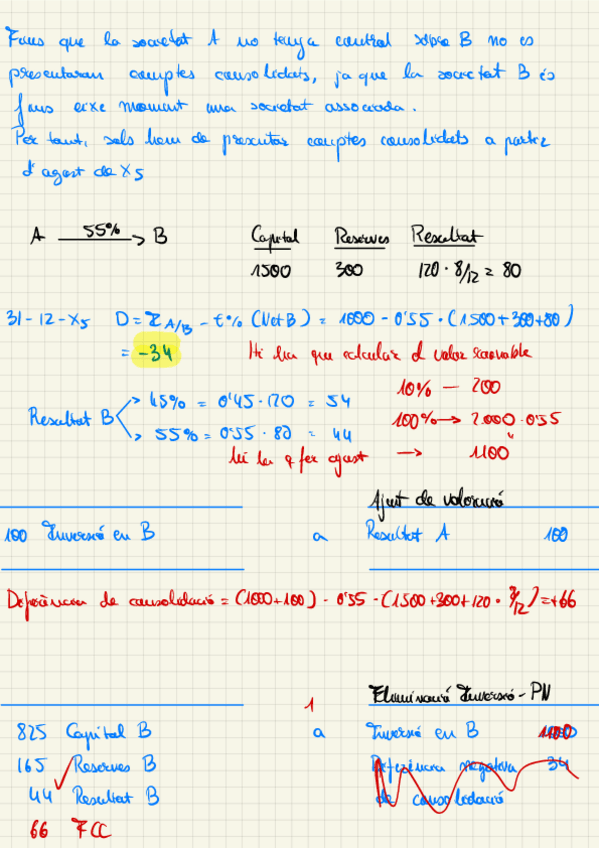 Fins que la societat A no tenga control sobre B no es
presentaran comptes consolidats, ja que la societat B és
fins eixe moment una societat associada.
Per tant, sols hem de presentar comptes consolidats a partir
d'agost de X5
A 55% B Capital Reserves Resultat
1500 300 120 · 8/12 = 80
31-12-X5 D = I A/B - t% (Net B) = 1000 - 0'55 · (1.500 + 300 + 80)
= -34 Hi ha que calcular el valor raonable
10% — 200
Resultat B > 45% = 0'45 · 120 = 54 100% → 2.000 · 0'55
> 55% = 0'55 · 80 = 44 "
hi ha q fer ajust → 1100
Ajust de valoració
100 Inversió en B a Resultat A 100
Diferència de consolidació = (1000 + 100) - 0'55 · (1500 + 300 + 120 · 8/12) = +66
1 Eliminació Inversió - PN
825 Capital B a Inversió en B 1100
165 Reserves B Diferència negativa 34
44 Resultat B de consolidació
66 FCC